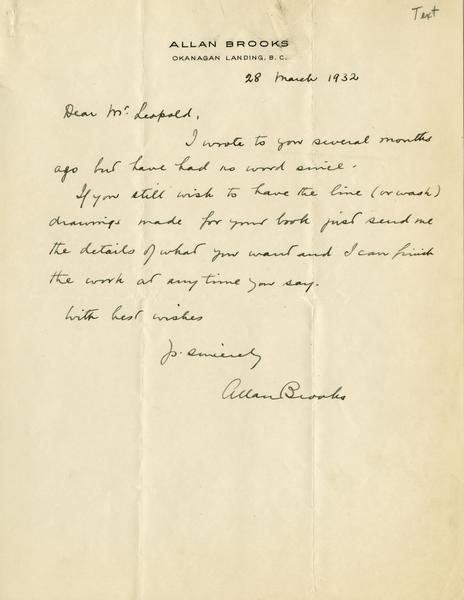 Text
ALLAN BROOKS
OKANAGAN LANDING, B. C.
28 March 1932
Dear Mr. Leopold,
I wrote to you several months
ago but have had no word since.
If you still wish to have the line (or wash)
drawings made for your book just send me
the details of what you want and I can finish
the work at any time you say.
With best wishes
Yr. sincerely
Allan Brooks